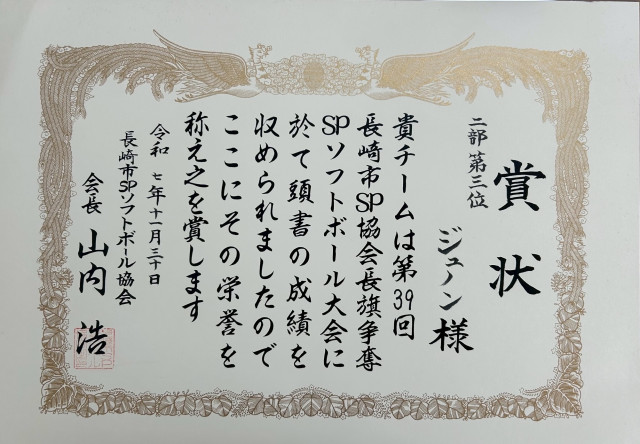 賞状
二部第三位
ジュノン様
貴チームは第39回
長崎市SP協会長旗争奪
SPソフトボール大会に
於て頭書の成績を
収められましたので
ここにその栄誉を
称え之を賞します
令和七年十一月三十日
長崎市SPソフトボール協会
会長 山内 浩